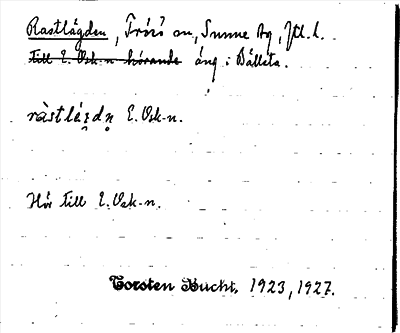 Rastlägden, Frösö sn, Sunne tg, Jtl. l.
till E. Osk-n hörande äng i Bälleta.
E. Osk-n.
Hör till E. Osk-n.
Torsten Bucht. 1923, 1927.